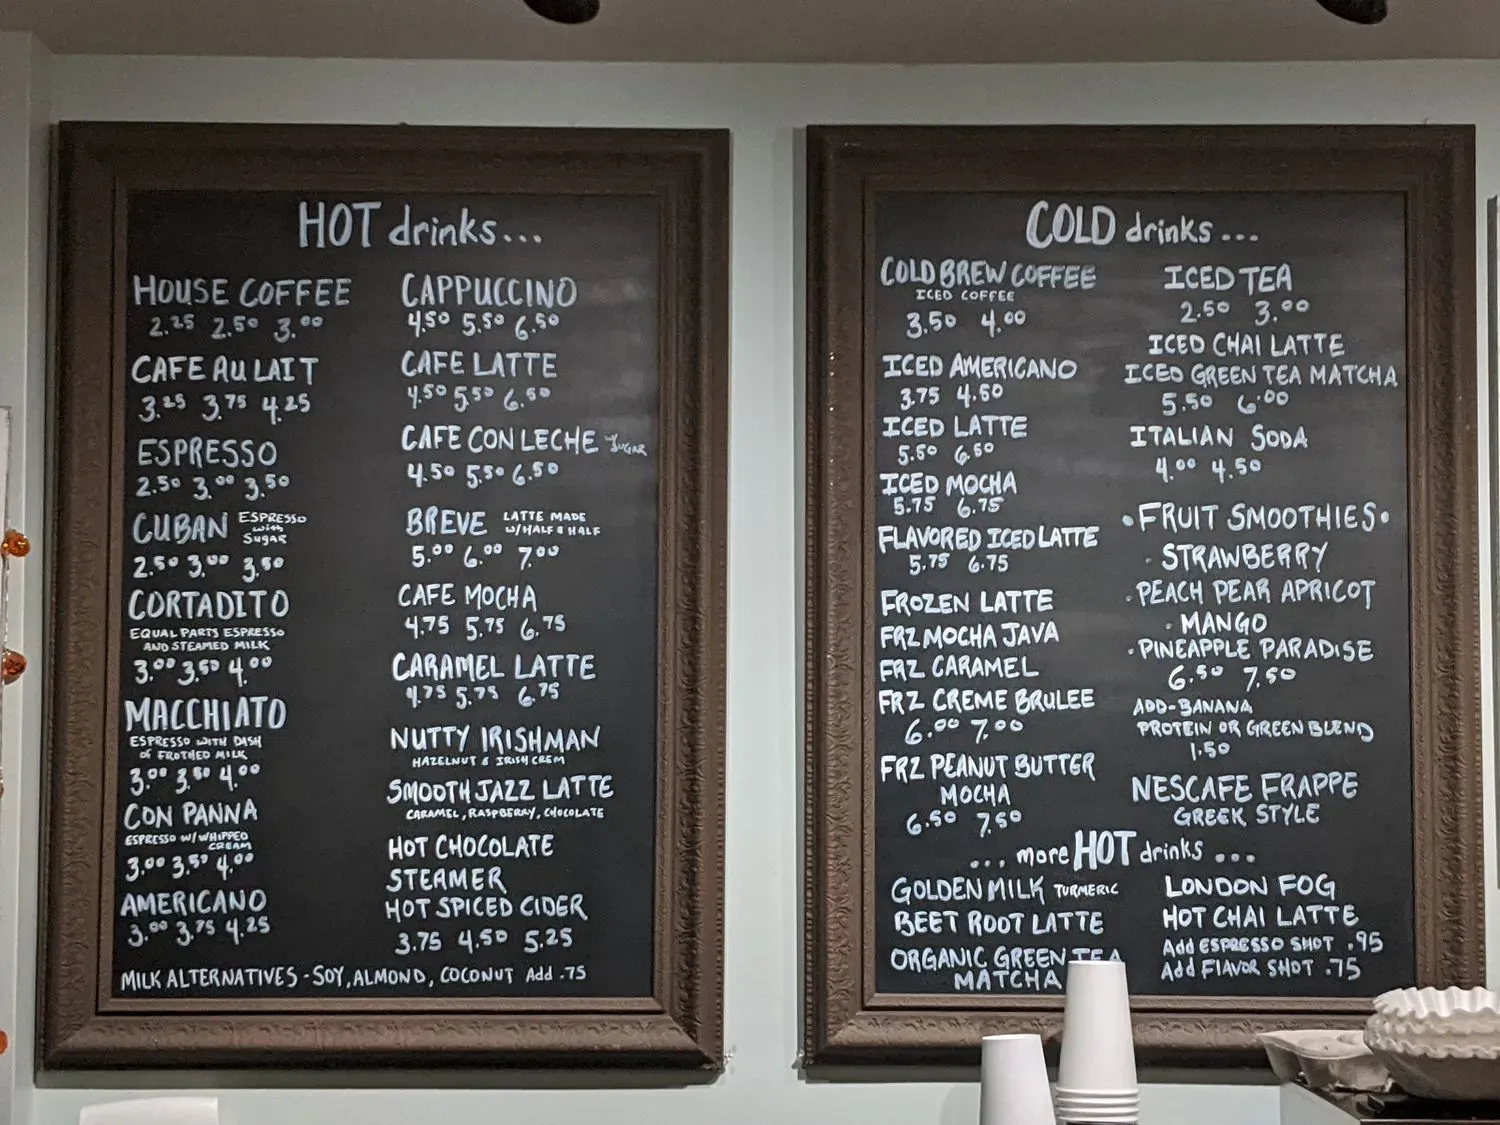 HOT drinks...
HOUSE COFFEE
2.25 2.50 3.00
CAFE AU LAIT
3.25 3.75 4.25
ESPRESSO
2.50 3.00 3.50
CUBAN ESPRESSO
with
SUGAR
2.50 3.00 3.50
CORTADITO
EQUAL PARTS ESPRESSO
AND STEAMED MILK
3.00 3.50 4.00
MACCHIATO
ESPRESSO WITH DASH
of FROTHED MILK
3.00 3.50 4.00
CON PANNA
ESPRESSO W/WHIPPED
CREAM
3.00 3.50 4.00
AMERICANO
3.00 3.75 4.25
CAPPUCCINO
4.50 5.50 6.50
CAFE LATTE
4.50 5.50 6.50
CAFE CON LECHE w/
SUGAR
4.50 5.50 6.50
BREVE LATTE MADE
W/HALF & HALF
5.00 6.00 7.00
CAFE MOCHA
4.75 5.75 6.75
CARAMEL LATTE
4.75 5.75 6.75
NUTTY IRISHMAN
HAZELNUT & IRISH CREM
SMOOTH JAZZ LATTE
CARAMEL, RASPBERRY, CHOCOLATE
HOT CHOCOLATE
STEAMER
HOT SPICED CIDER
3.75 4.50 5.25
MILK ALTERNATIVES - SOY, ALMOND, COCONUT Add .75
COLD drinks...
COLD BREW COFFEE
ICED COFFEE
3.50 4.00
ICED AMERICANO
3.75 4.50
ICED LATTE
5.50 6.50
ICED MOCHA
5.75 6.75
FLAVORED ICED LATTE
5.75 6.75
FROZEN LATTE
FRZ MOCHA JAVA
FRZ CARAMEL
FRZ CREME BRULEE
6.00 7.00
FRZ PEANUT BUTTER
MOCHA
6.50 7.50
ICED TEA
2.50 3.00
ICED CHAI LATTE
ICED GREEN TEA MATCHA
5.50 6.00
ITALIAN SODA
4.00 4.50
•FRUIT SMOOTHIES•
• STRAWBERRY
• PEACH PEAR APRICOT
• MANGO
• PINEAPPLE PARADISE
6.50 7.50
ADD-BANANA
PROTEIN OR GREEN BLEND
1.50
NESCAFE FRAPPE
GREEK STYLE
...more HOT drinks...
GOLDEN MILK TURMERIC
BEET ROOT LATTE
ORGANIC GREEN TEA
MATCHA
LONDON FOG
HOT CHAI LATTE
Add ESPRESSO SHOT .95
Add FLAVOR SHOT .75